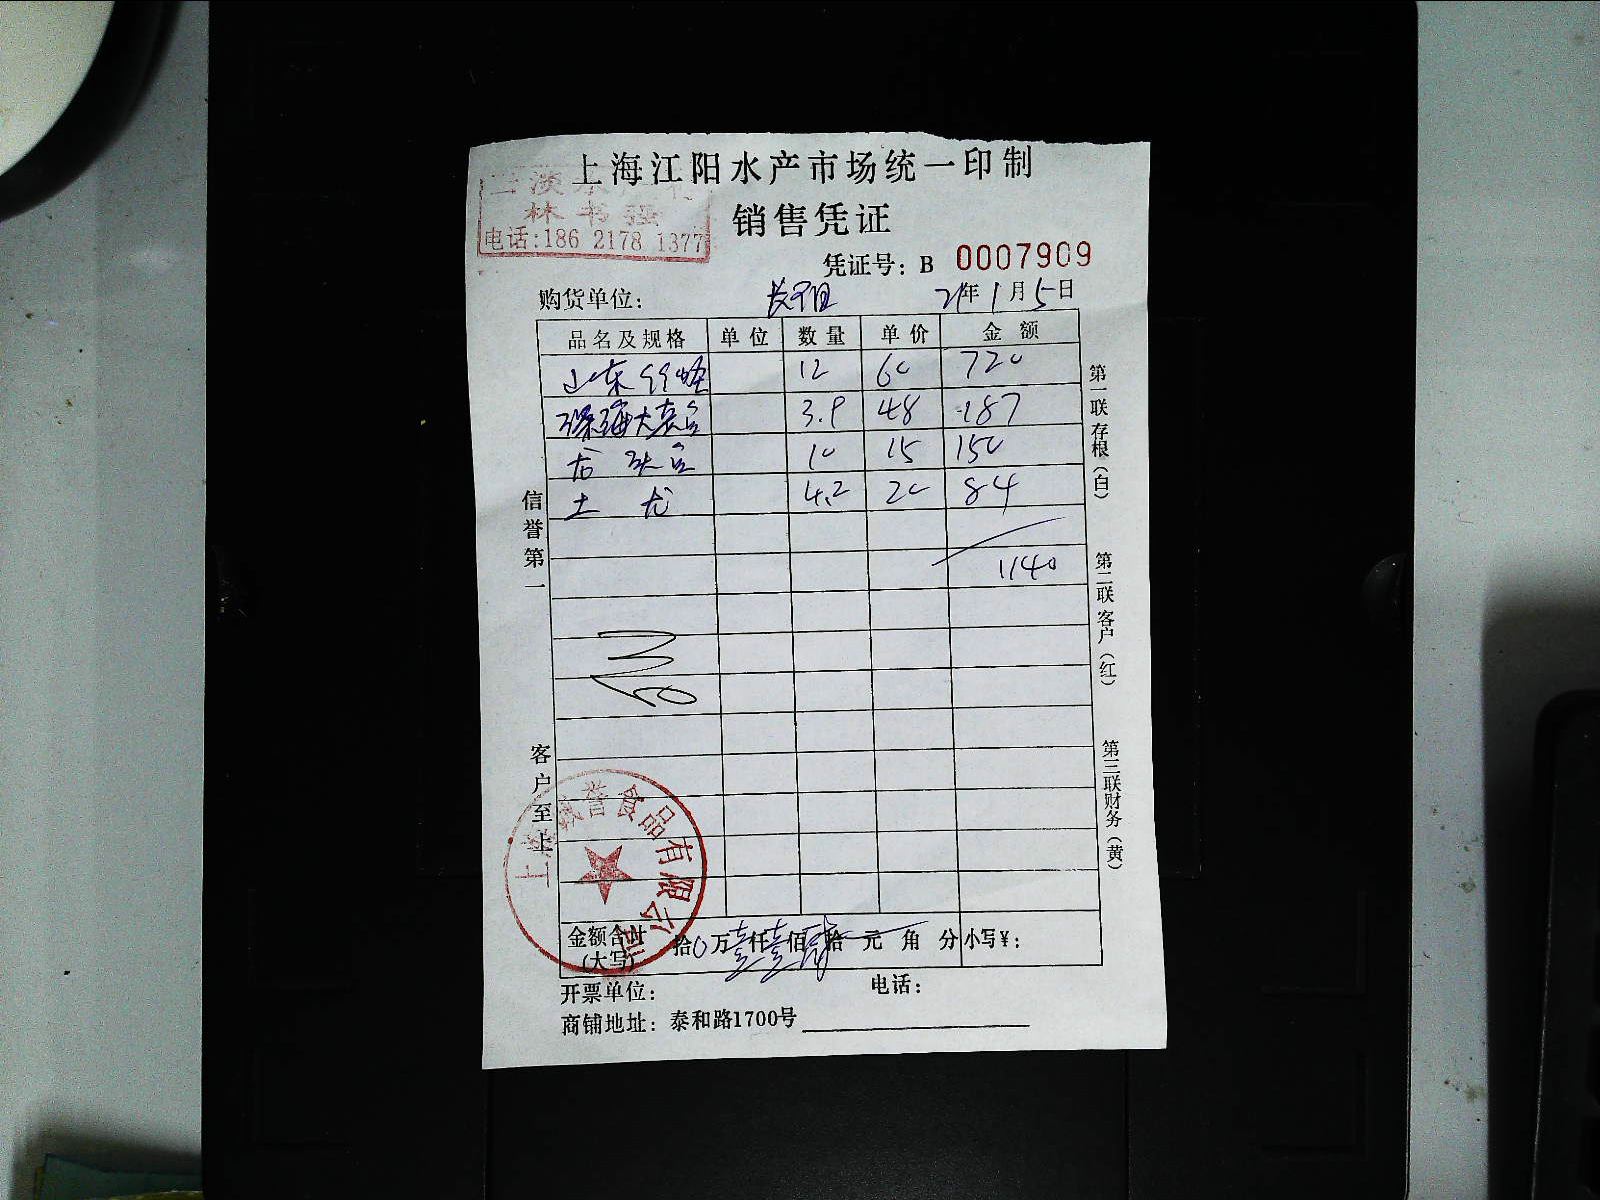 上海江阳水产市场统一印制
林书强
电话:186 2178 1377
销售凭证
凭证号: B 0007909
购货单位: 21年1月5日
品名及规格 单位 数量 单价 金额
山东 12 60 720
深海大 3.9 48 187
10 15 150
土龙 4.2 20 84
1140
信誉第一
客户至上
第一联存根(白)
第二联客户(红)
第三联财务(黄)
上海诚誉食品有限公司
金额合计(大写) 拾0万壹仟壹佰肆拾元角分 小写¥:
开票单位: 电话:
商铺地址: 泰和路1700号